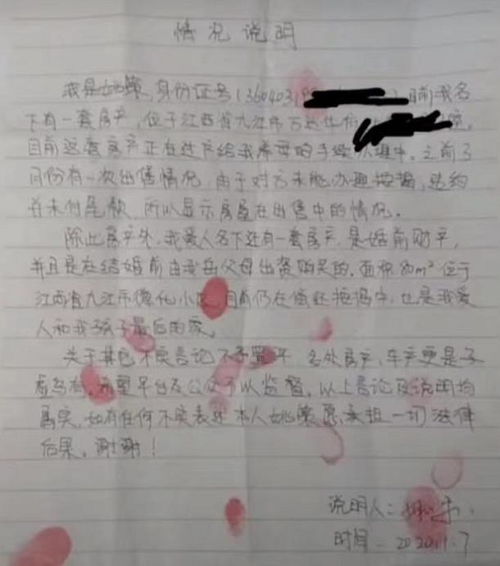 情况说明
我是姚策,身份证号(360403199 ),目前我名
下有一套房产,位于江西省九江市
目前这套房产正在过户给我岳母的手续办理中。之前3
月份有一次出售情况,由于对方未能办理按揭,违约
并未付尾款,所以显示房屋在出售中的情况。
除此房产外,我爱人名下还有一套房产,是婚前财产,
并且是在结婚前由我岳父母出资购买的,面积80m²位于
江西省九江市德化小区,目前仍在偿还按揭中,也是我爱
人和我孩子最后的家。
关于其它不实言论不予置评,名处房产,车产更是子
虚乌有,希望平台及公众予以监督,以上言论及说明均
属实,如有任何不实表述 本人姚策愿承担一切法律
后果。谢谢!
说明人:姚策
时间. 2020.11.7